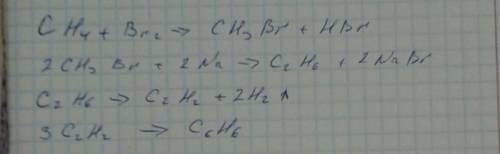 CH₄ + Br₂ → CH₃Br + HBr
2CH₃Br + 2Na → C₂H₆ + 2NaBr
C₂H₆ → C₂H₂ + 2H₂↑
3C₂H₂ → C₆H₆